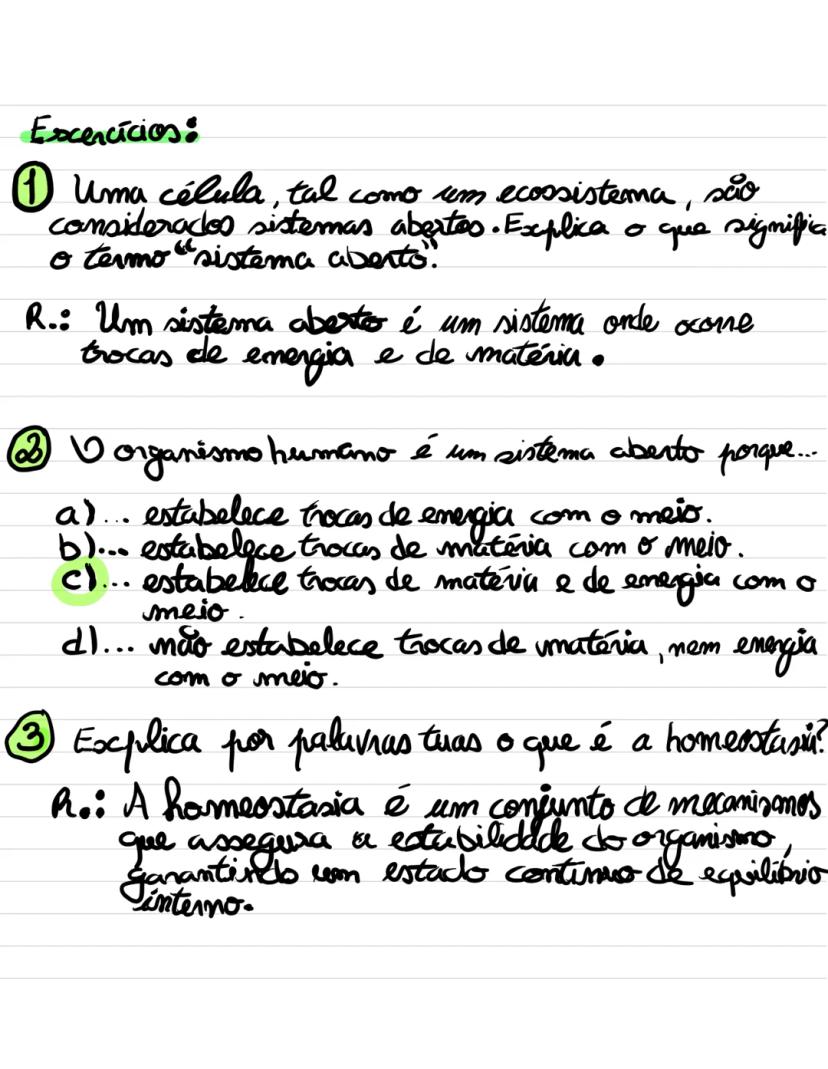 Excercícios:
1 Uma célula, tal como um ecossistema, são
considerados sistemas abertos. Explica o que significa
o termo "sistema aberto".
R.: Um sistema aberto é um sistema onde ocorre
trocas de energia e de matéria.
2 O organismo humano é um sistema aberto porque...
a)... estabelece trocas de energia com o meio.
b)... estabelece trocas de matéria com o meio.
c)... estabelece trocas de matéria e de energia com o
meio.
d)... não estabelece trocas de matéria, nem energia
com o meio.
3 Explica por palavras tuas o que é a homeostasia?
R.: A homeostasia é um conjunto de mecanismos
que assegura a estabilidade do organismo,
garantindo um estado contínuo de equilíbrio
interno.